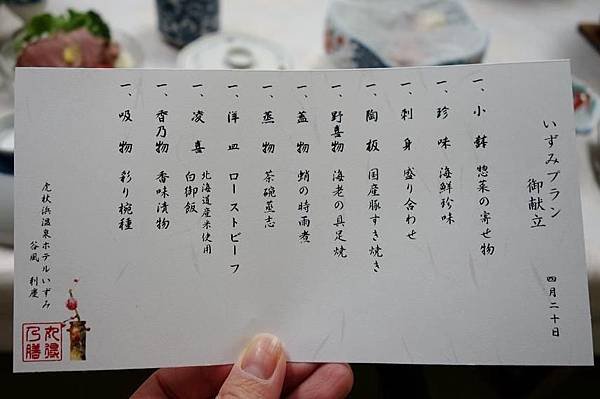 いずみプラン
御献立
四月二十日
一、小鉢 惣菜の寄せ物
一、珍味 海鮮珍味
一、刺身 盛り合わせ
一、陶板 国産豚すき焼き
一、野喜物 海老の具足焼
一、蓋物 蛸の時雨煮
一、蒸物 茶碗蒸志
一、洋皿 ローストビーフ
一、凌喜 北海道産米使用
白御飯
一、香乃物 香味漬物
一、吸物 彩り椀種
虎杖浜温泉ホテルいずみ
谷風 利慶